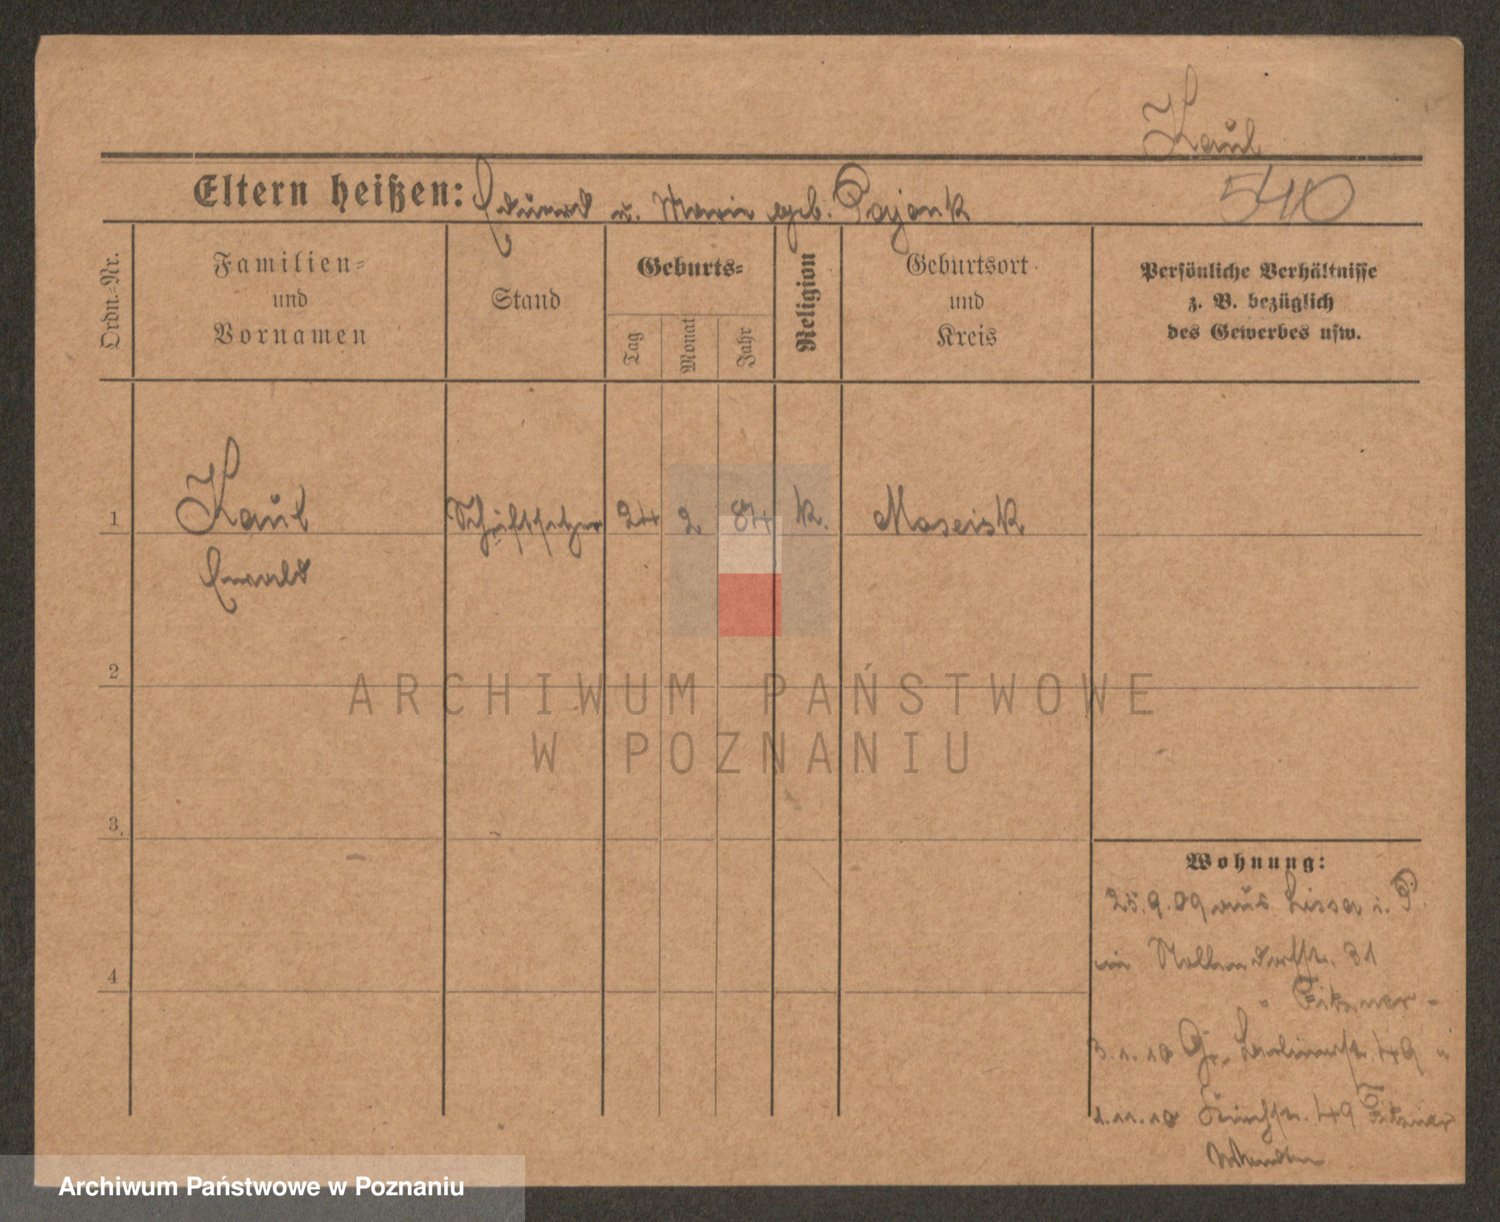 Kaul
Eltern heißen: Eduard u. Marie geb. Pajonk
540
Ordn.-Nr.
Familien-
und
Vornamen
Stand
Geburts-
Tag
Monat
Jahr
Religion
Geburtsort
und
Kreis
Persönliche Verhältnisse
z. B. bezüglich
des Gewerbes usw.
1
Kaul
Ewald
Schriftsetzer
24
2
84
k.
2
3
4
ARCHIWUM PAŃSTWOWE
W POZNANIU
Wohnung:
25.9.09 aus Lissa i. P.
in Nollendorfstr. 31
" Fitzner -
3.1.10 Gr. Berlinerstr. 49 "
1.11.10 Kirchstr. 49 Fitzner
Archiwum Państwowe w Poznaniu